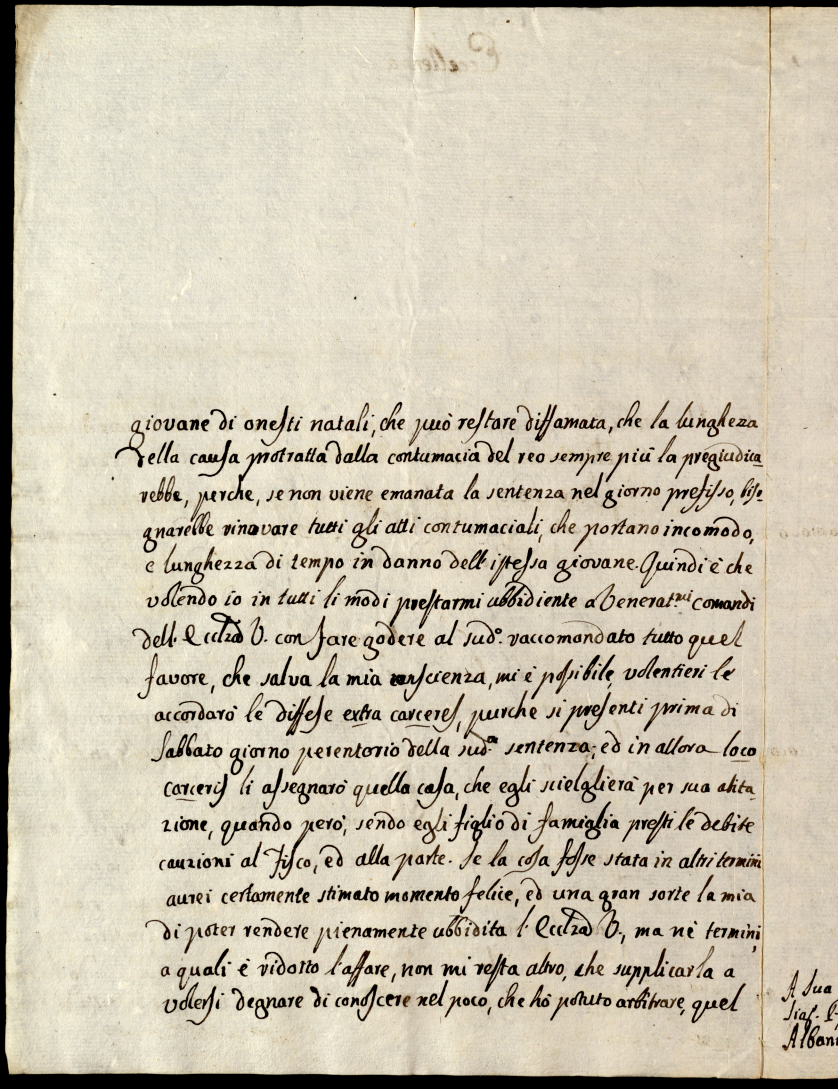 giovane di onesti natali, che può restare diffamata, che la lungheza
della causa protratta dalla contumacia del reo sempre più la pregiudica
rebbe, perche, se non viene emanata la sentenza nel giorno prefisso, biso-
gnarebbe rinovare tutti gli atti contumaciali, che portano incomodo,
e lunghezza di tempo in danno dell'istessa giovane. Quindi è che
volendo io in tutti li modi prestarmi ubbidiente a Venerat.mi comandi
dell' Ecclza V. con fare godere al sud.o raccomandato tutto quel
favore, che salva la mia coscienza, mi è possibile, volentieri le
accordarò le diffese extra carceres, purche si presenti prima di
Sabbato giorno perentorio della sud.a sentenza; ed in allora loco
carceris li assegnarò quella casa, che egli scielglierà per sua abita-
zione, quando però, sendo egli figlio di famiglia presti le debite
cauzioni al Fisco, ed alla parte. Se la cosa fosse stata in altri termini
aurei certamente stimato momento felice, ed una gran sorte la mia
di poter rendere pienamente ubbidita l' Ecclza V., ma nè termini,
a quali è ridotto l'affare, non mi resta altro, che supplicarla a
volersi degnare di conoscere nel poco, che hò potuto arbitrare, quel
A Sua
Sig.
Albani